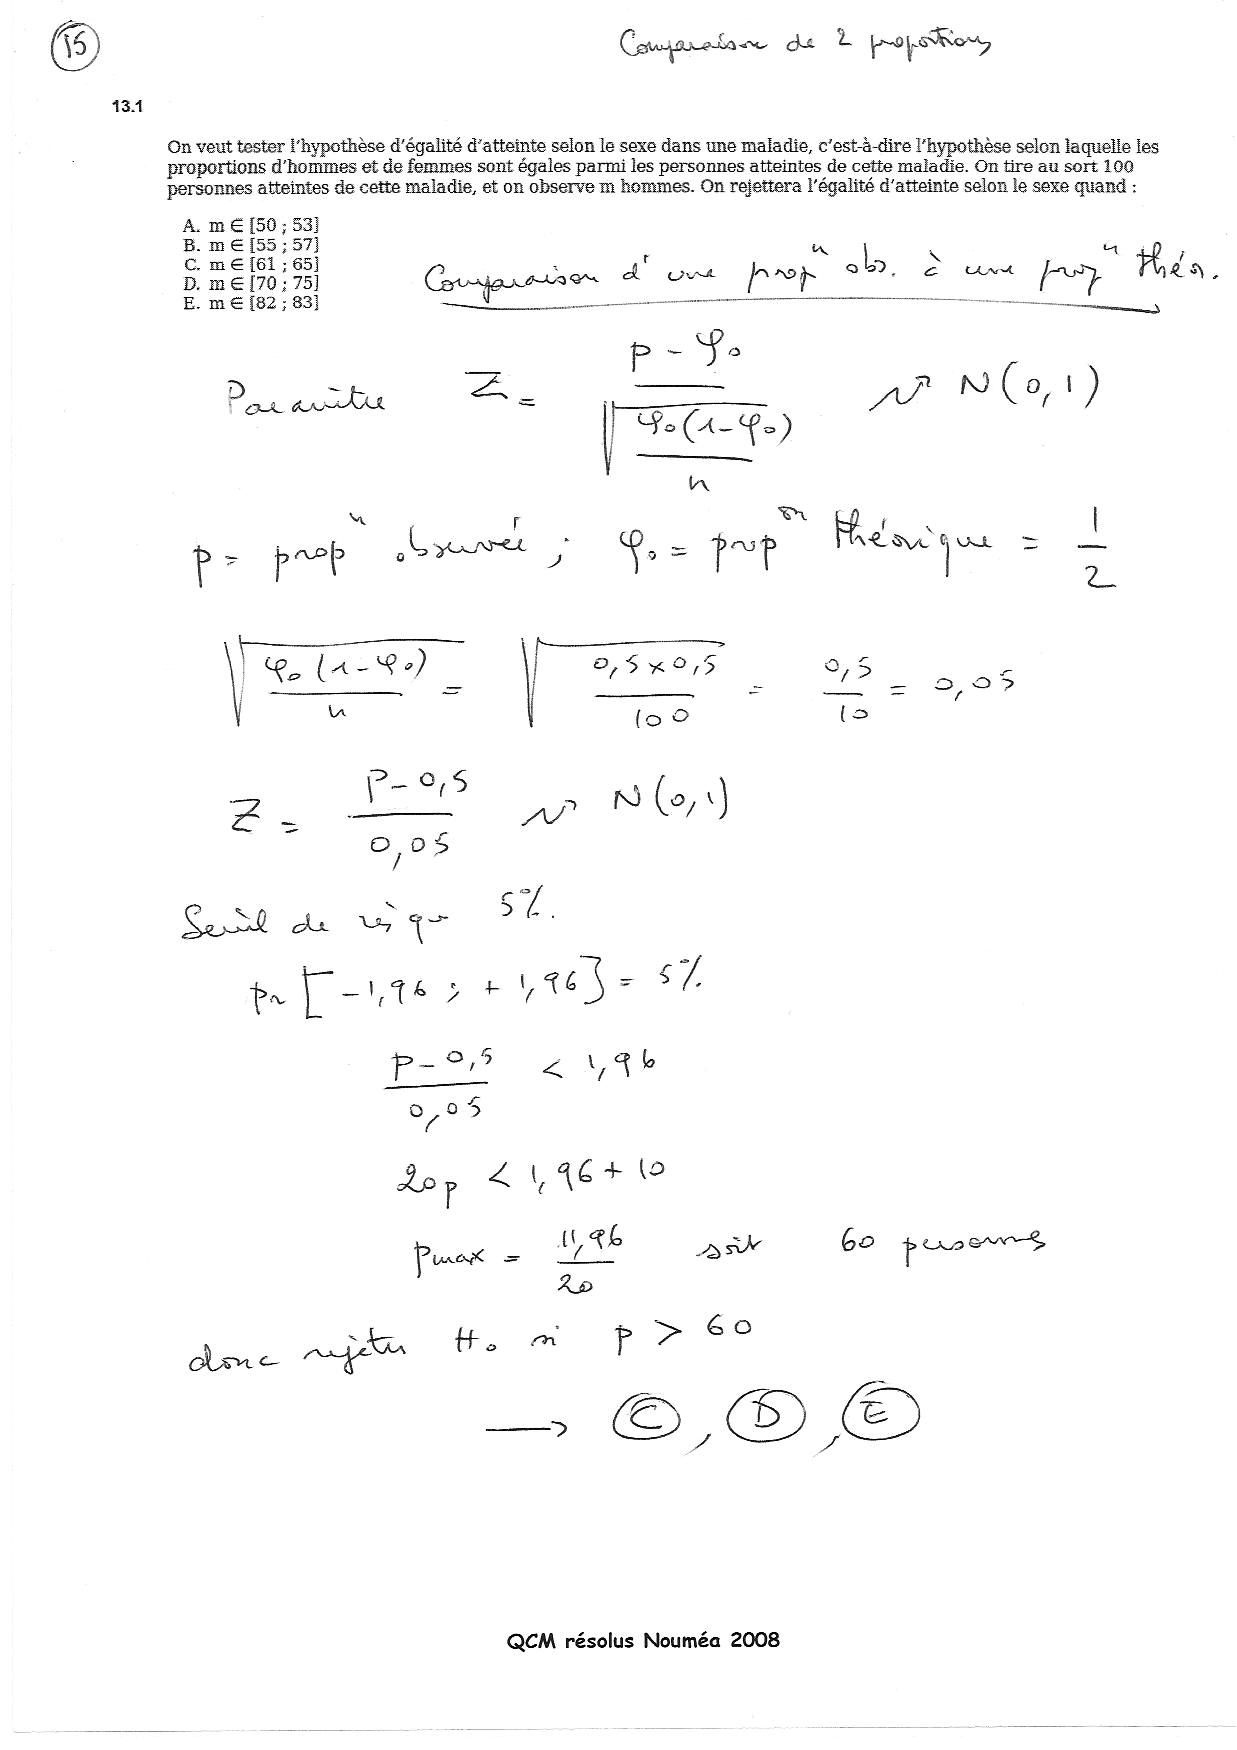 15
Comparaison de 2 proportions
13.1
On veut tester l'hypothèse d'égalité d'atteinte selon le sexe dans une maladie, c'est-à-dire l'hypothèse selon laquelle les
proportions d'hommes et de femmes sont égales parmi les personnes atteintes de cette maladie. On tire au sort 100
personnes atteintes de cette maladie, et on observe m hommes. On rejettera l'égalité d'atteinte selon le sexe quand :
A. m ∈ [50 ; 53]
B. m ∈ [55 ; 57]
C. m ∈ [61 ; 65]
D. m ∈ [70 ; 75]
E. m ∈ [82 ; 83]
Comparaison d'une propⁿ obs. à une propⁿ théo.
Paramètre Z = (p - φ₀) / √(φ₀(1-φ₀)/n) ~> N(0,1)
p = propⁿ observée ; φ₀ = propᵒⁿ théorique = 1/2
√(φ₀(1-φ₀)/n) = √(0,5×0,5/100) = 0,5/10 = 0,05
Z = (p-0,5)/0,05 ~> N(0,1)
Seuil de risque 5%.
pr [-1,96 ; +1,96] = 5%.
(p-0,5)/0,05 < 1,96
20p < 1,96 + 10
pmax = 11,96/20 soit 60 personnes
donc rejeter H₀ si p > 60
→ C, D, E
QCM résolus Nouméa 2008